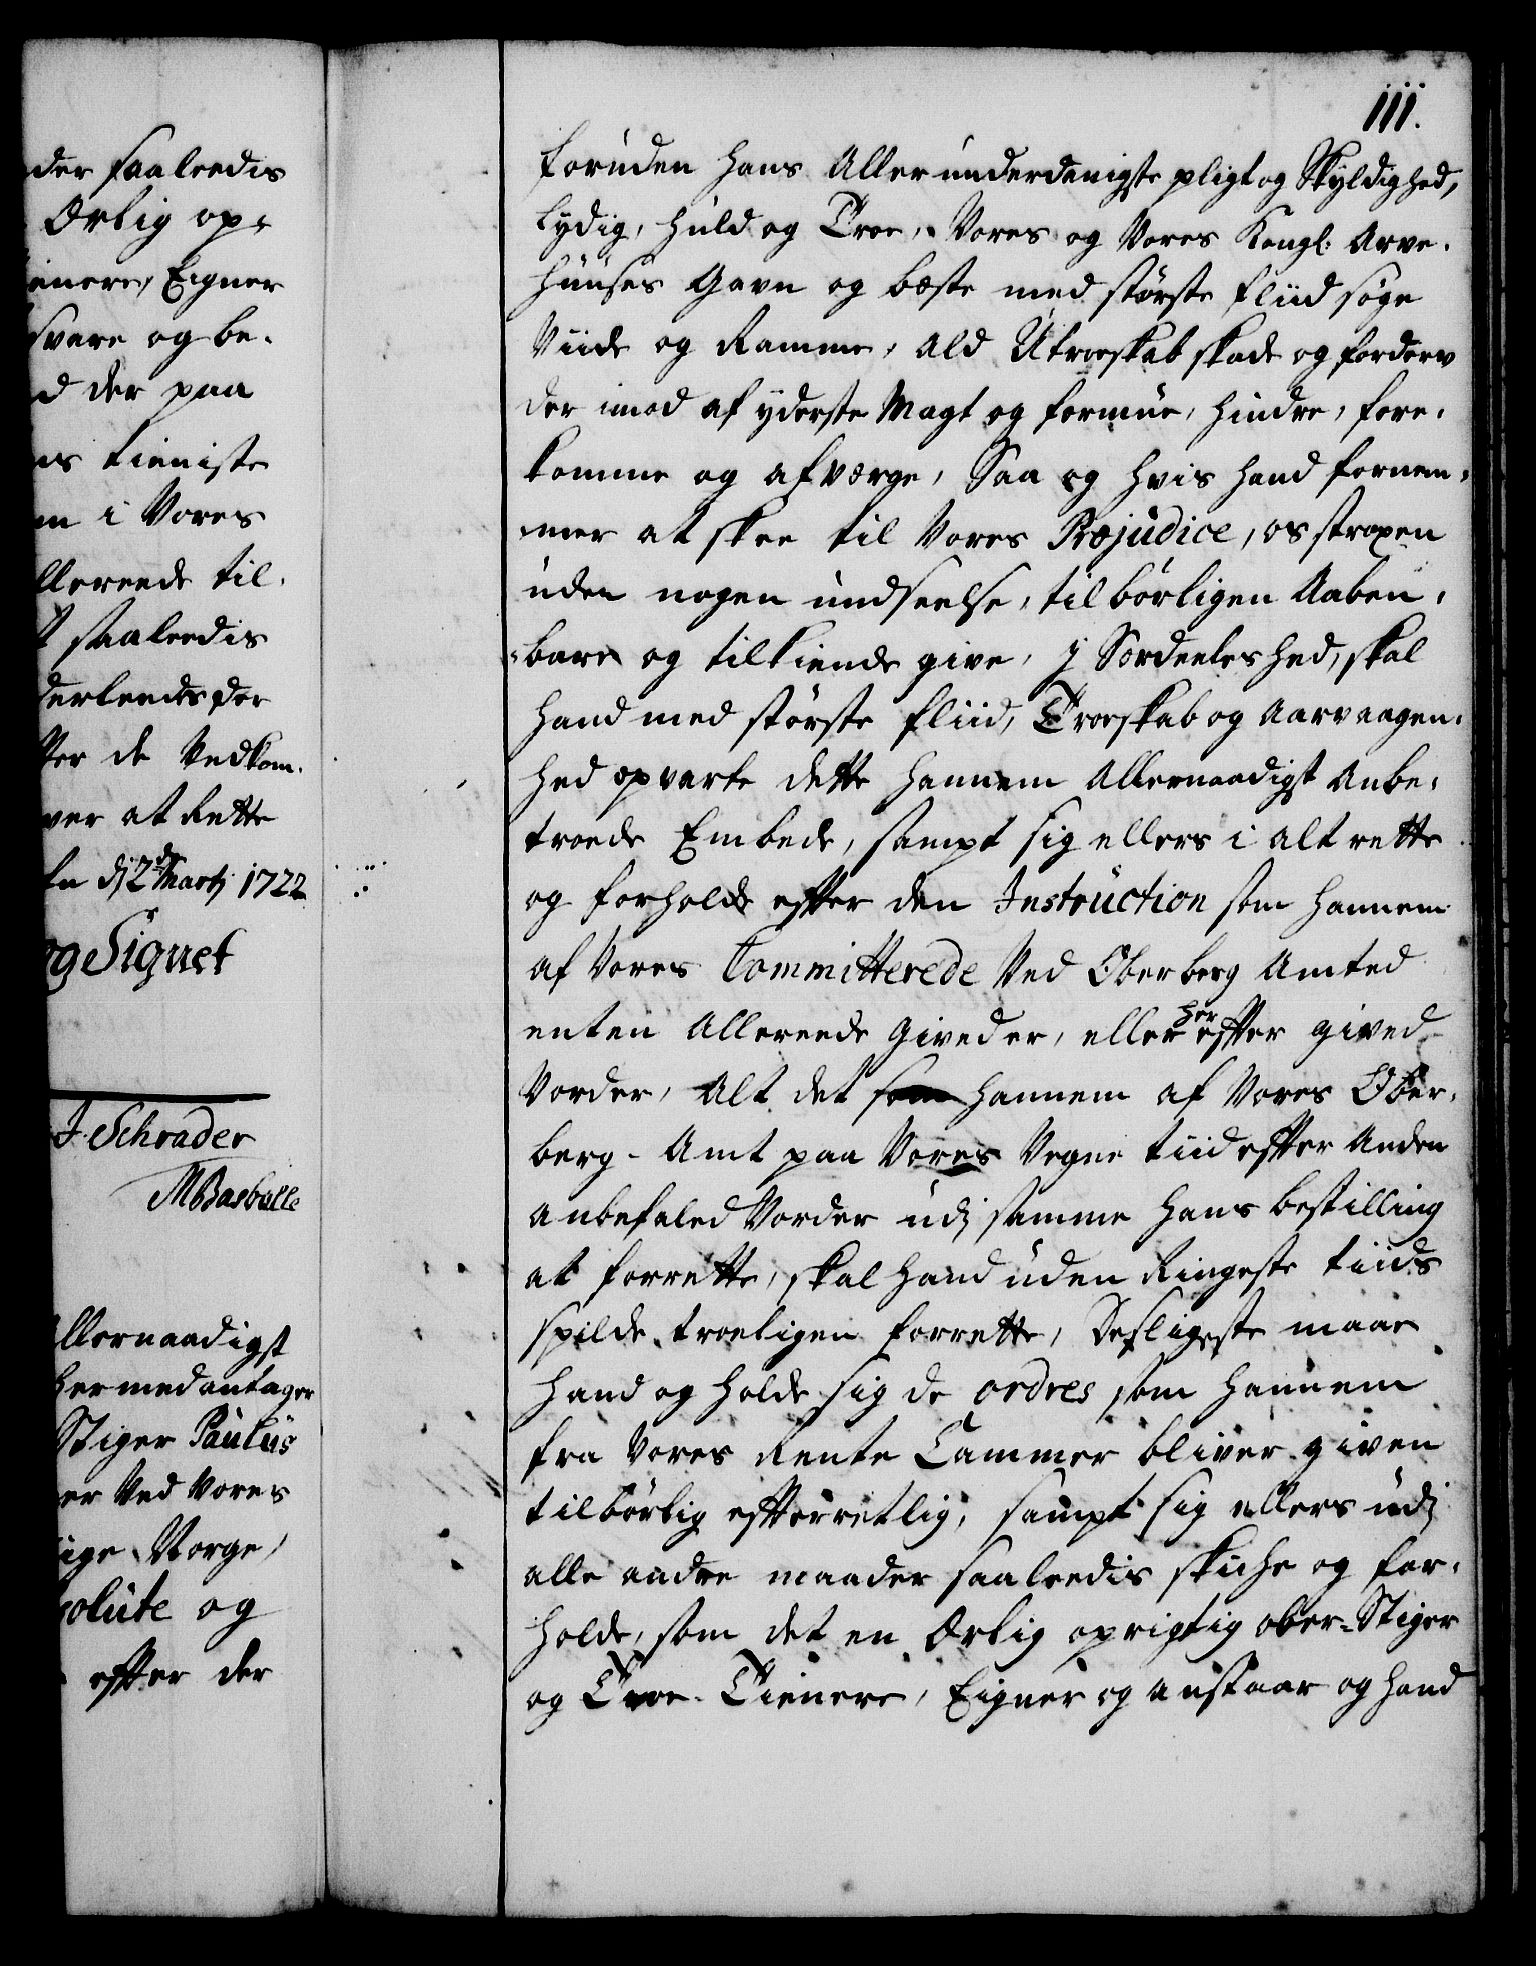 der saaleedis
Ærlig op-
ienere, Eigner
svare og be-
d der paa
ns tieniste
m i Vores
llereede til-
t saaleedis
derleedes der
ter de Vedkom-
ver at Rette
en dj 2de Martj 1722
og Signet
J. Schrader
MBasballe
llernaadigst
her med antager
Stiger Paulus
er Ved Vores
ige Norge,
solute og
efter der
111.
foruden hans Allerunderdanigste pligt og Skyldighed,
Lydig, huld og Troe, Vores og Vores Kongl: Arve-
huuses Gavn og beste med störste fliid söge
Viide og Ramme, ald Utroeskab skade og forderv
der imod af yderste Magt og formue, hindre, fore-
komme og afværge, Saa og hvis hand fornem-
mer at skee til Vores Præjudice, os straxen
uden nogen undseelse, tilbörligen Aaben-
bare og tilkiende give, J Særdeeleshed, skal
hand med störste fliid, Troeskab og Aarvaagen-
hed opvarte dette hannem Allernaadigst Anbe-
troede Embede, sampt sig ellers i alt rette
og forholde efter den Instruction som hannem
af Vores Committerede Ved Oberberg Amted
enten Allereede Gived er, eller her efter gived
Vorder, Alt det som hannem af Vores Ober-
berg-Amt paa Vores Vegne tiid efter Anden
anbefaled Vorder udj samme hans bestilling
at forrette, skal hand uden Ringeste tiids
spilde troeligen forrette, Desligeste maae
hand og holde sig de ordres som hannem
fra Vores Rente Cammer bliver given
tilbörlig efterretlig, sampt sig ellers udj
alle andre maader saaleedis skiche og for-
holde, som det en Ærlig oprigtig ober-Stiger
og Troe-Tienere, Eigner og anstaar og hand